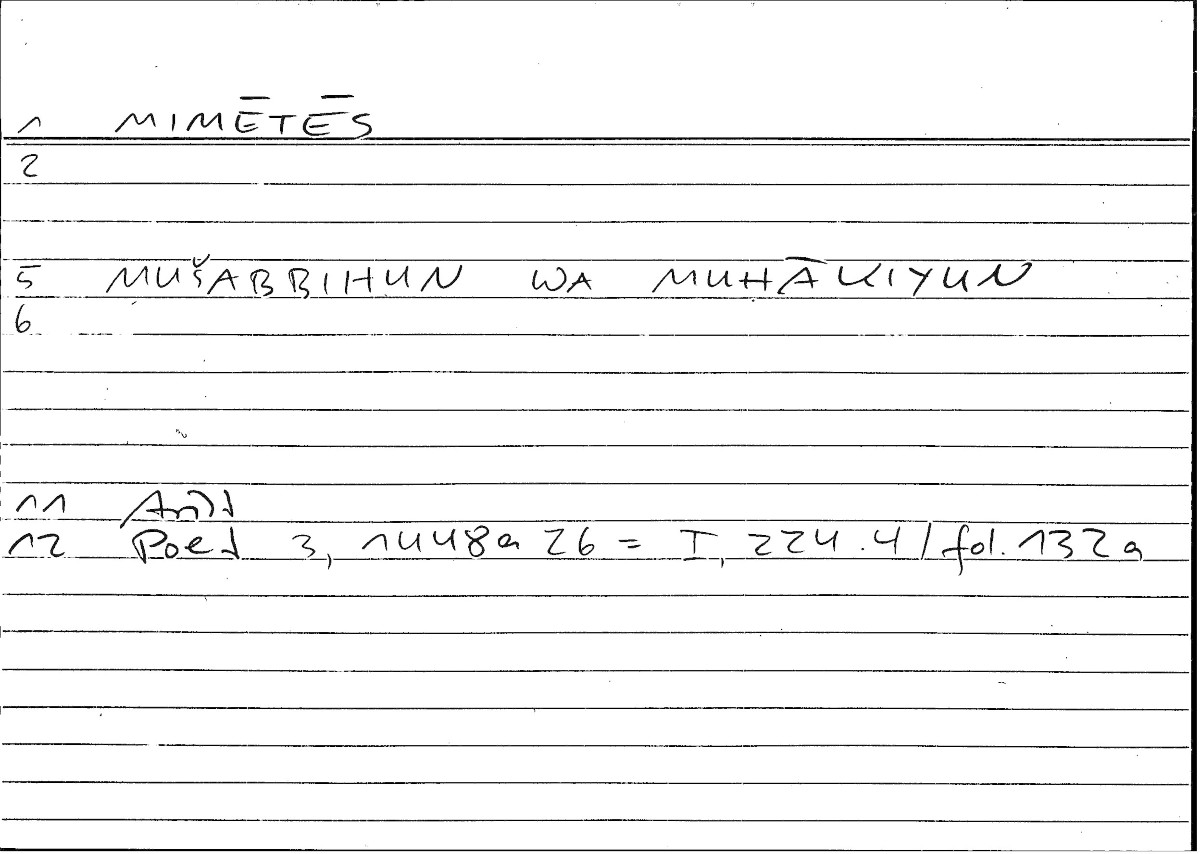 1 MIMĒTĒS
2
5 MUŠABBIHUN WA MUHĀKIYUN
6
11 Arist
12 Poet 3, 1448a26 = I, 224.4 / fol. 132a